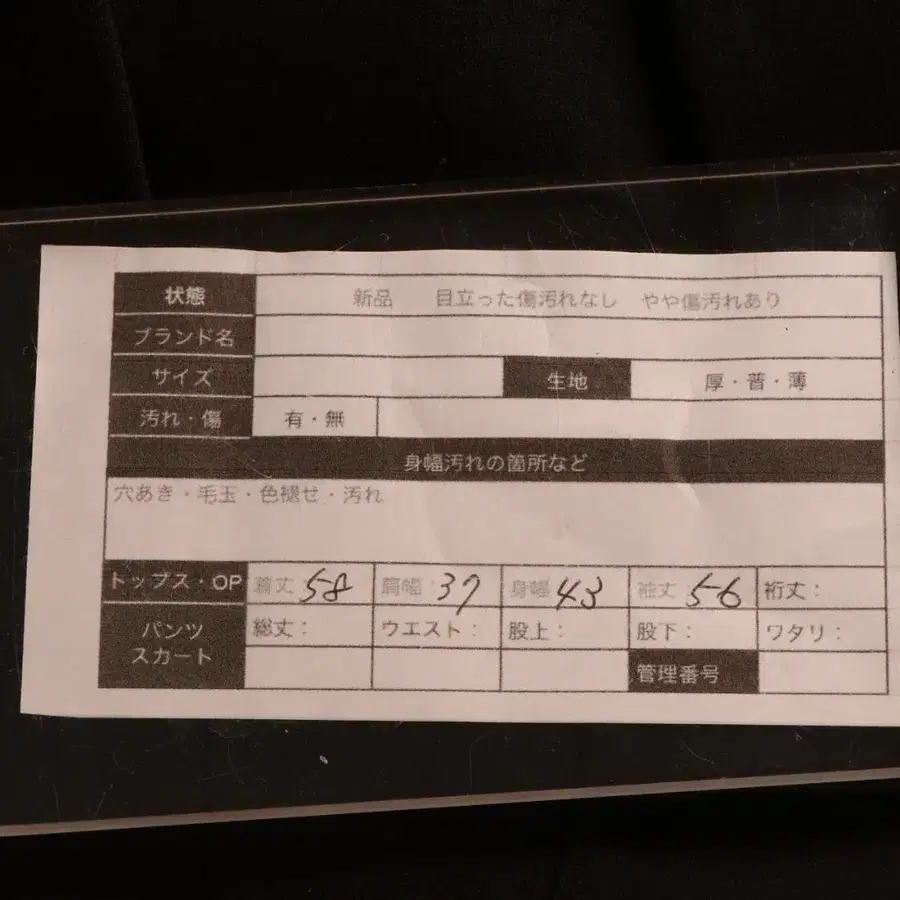 状態 新品 目立った傷汚れなし やや傷汚れあり
ブランド名
サイズ 生地 厚・普・薄
汚れ・傷 有・無
身幅汚れの箇所など
穴あき・毛玉・色褪せ・汚れ
トップス・OP 着丈：58 肩幅：37 身幅 43 袖丈 56 裄丈：
パンツ スカート 総丈： ウエスト： 股上： 股下： ワタリ：
管理番号